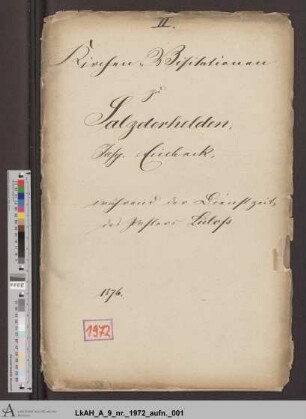 II.
Kirchen-Visitationen
Salzderhelden,
Insp. Einbeck,
während der Dienstzeit
des Pastors
1876.
1972
LkAH_A_9_nr._1972_aufn._001